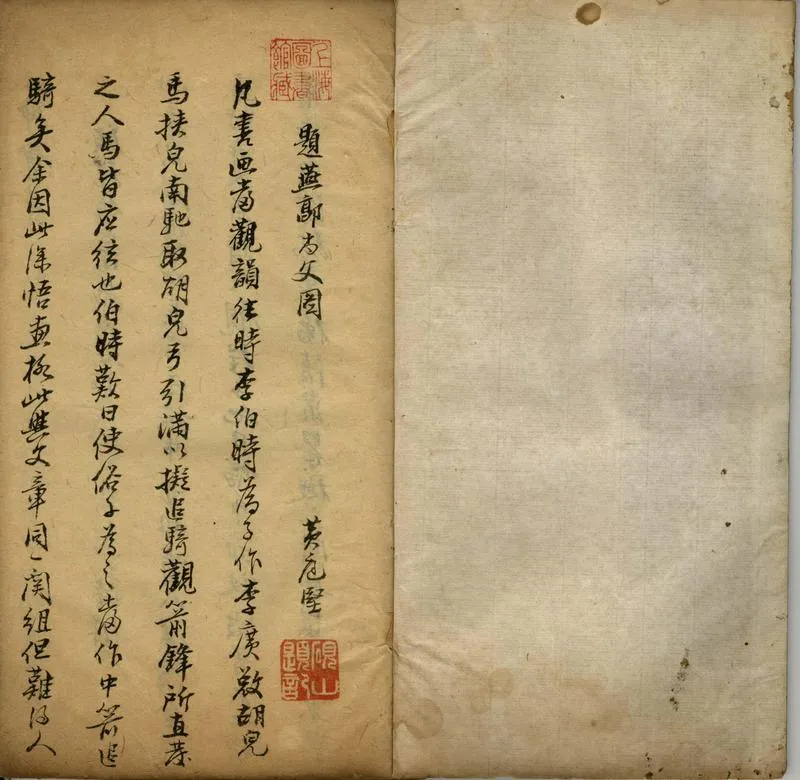 上海圖書館藏
題燕郭尚父圖
黃庭堅
硯山
凡書画當觀韻往時李伯時為予作李廣敚胡兒
馬挾兒南馳取胡兒弓引滿以擬追騎觀箭鋒所直發
之人馬皆应弦也伯時歎曰使俗子為之當作中箭追
騎矣余因此深悟畫格此與文章同一関紐但難得人